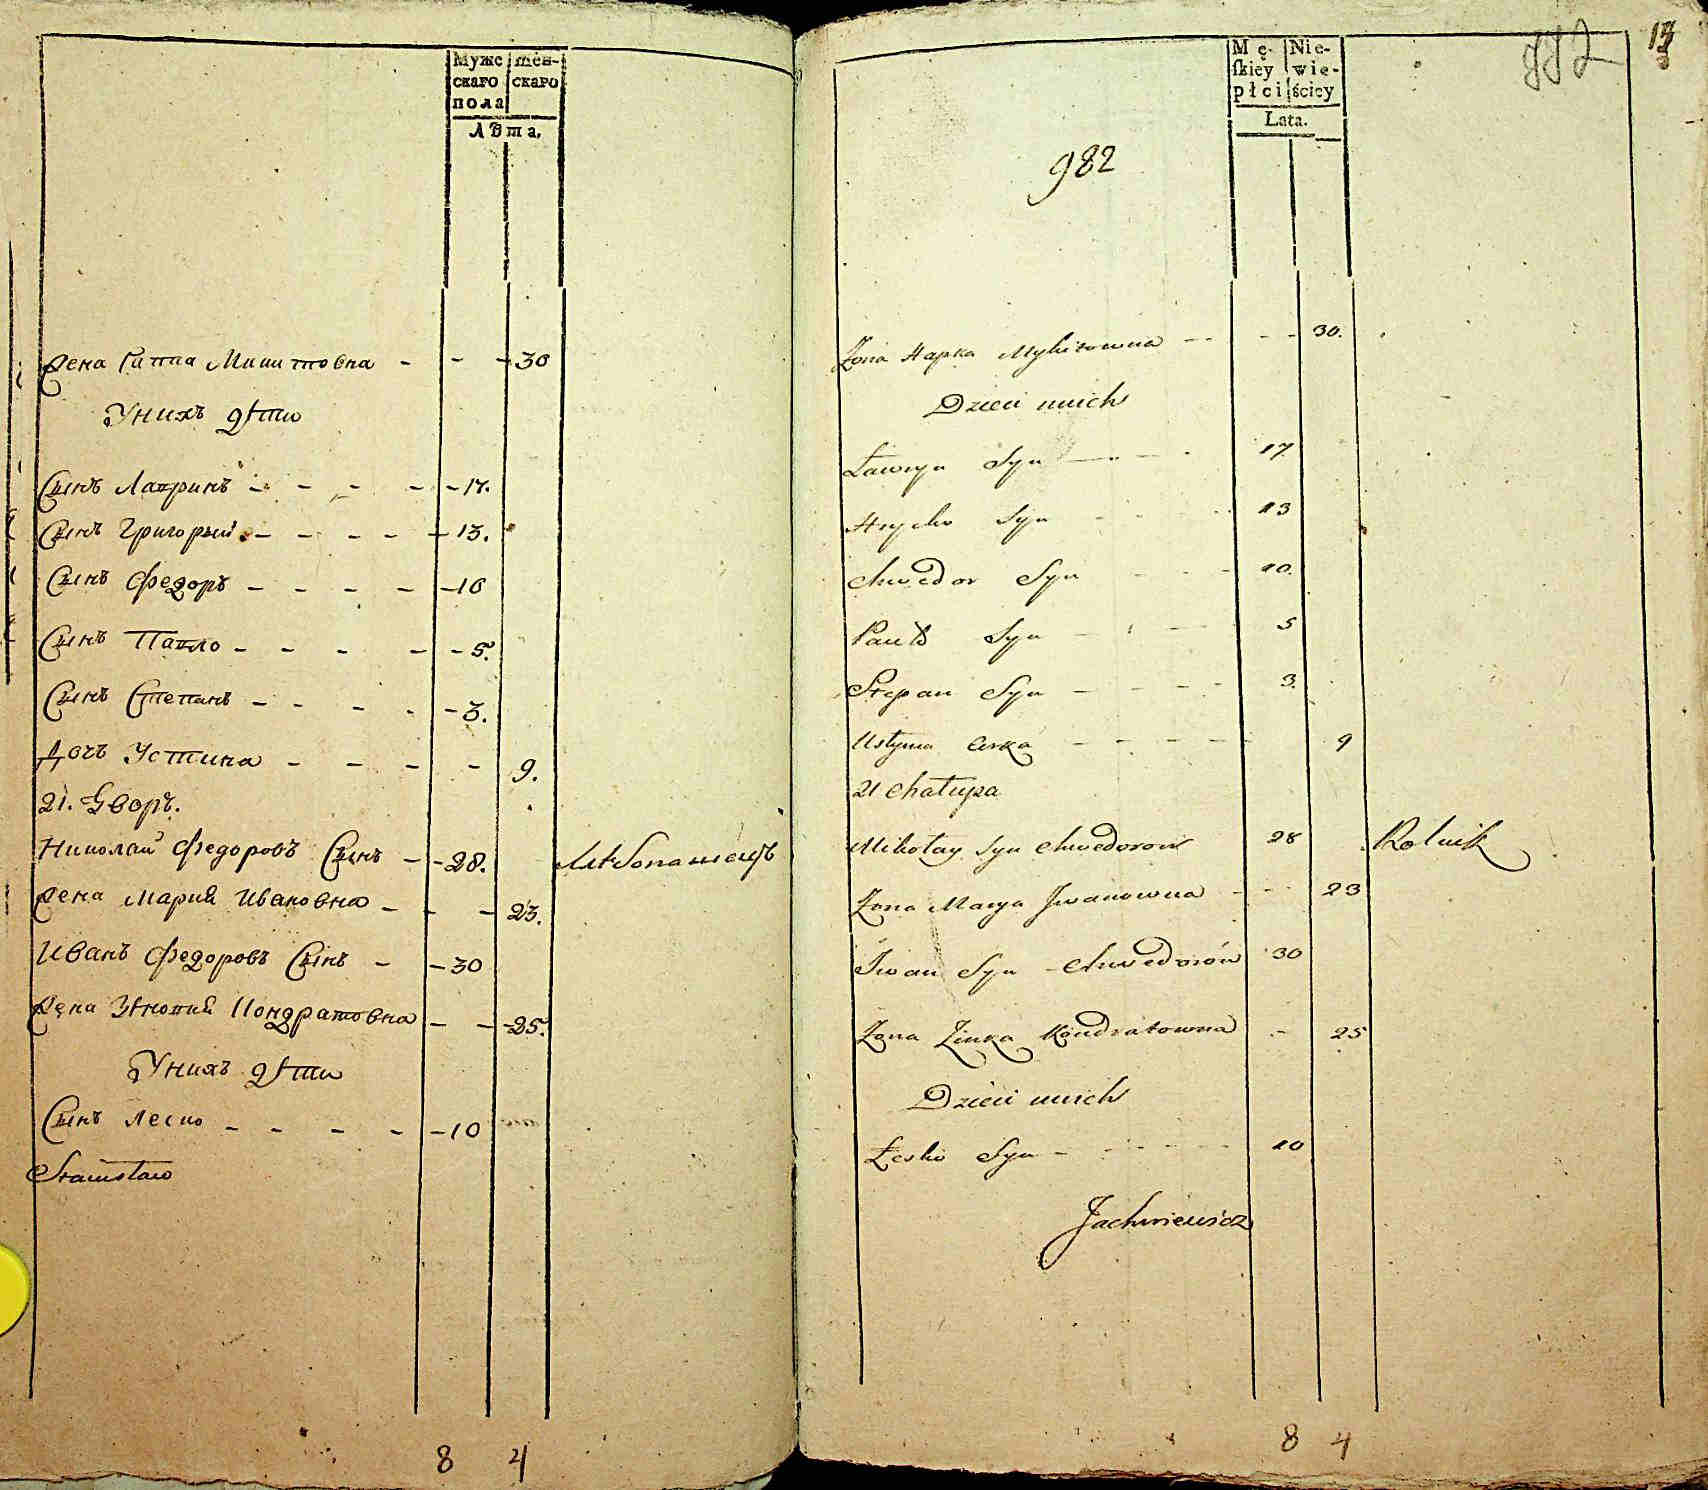 Мужс
скаго
пола
жен-
скаго
Лѣта.
Жена Гапна Микитовна - - - 30
У нихъ дѣти
Сынъ Лавринъ - - - - - 17.
Сынъ Григорый - - - - - 13.
Сынъ Федоръ - - - - - 10
Сынъ Павло - - - - - 5.
Сынъ Степанъ - - - - - 3.
Дочъ Устина - - - - 9.
21. Дворъ.
Николай Федоровъ Сынъ - - 28. Хлѣбопашецъ
Жена Мария Ивановна - - - 23.
Иванъ Федоровъ Сынъ - - 30
Жена Кондратовна - - - 25.
У нихъ дѣти
Сынъ Леско - - - - - 10
Stanisław
8 4
982
13
982
Mę-
skiey
płci
Nie-
wie-
ściey
Lata.
Żona Hapka Mykitowna - - - - 30.
Dzieci unich
Ławryn Syn - - - 17
Hryćko Syn - - - 13
Chwedor Syn - - - 10.
Pawło Syn - - - 5
Stepan Syn - - - - 3.
Ustyna Curka - - - - - 9
21 Chałupa
Mikołay Syn Chwedorow 28 Rolnik
Żona Marya Jwanowna - - - 23
Jwan Syn Chwedorów 30
Żona Zinka Kondratowna - 25
Dzieci unich
Łesko Syn - - - - - 10
Jachniewicz
8 4